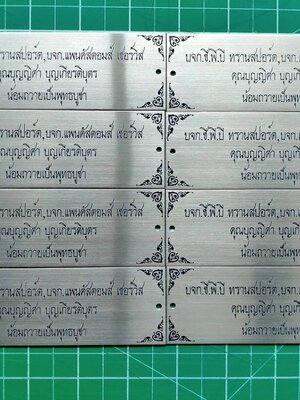 ทรานสปอร์ต,บจก.แพนคัสตอมส์ เซอร์วิส
คุณบุญญิศา บุญเกียรติบุตร
น้อมถวายเป็นพุทธบูชา
บจก.ซีพีบี ทรานสปอร์ต,บจก.
คุณบุญญิศา บุญเ
น้อมถวายเป็นพุท
ทรานสปอร์ต,บจก.แพนคัสตอมส์ เซอร์วิส
คุณบุญญิศา บุญเกียรติบุตร
น้อมถวายเป็นพุทธบูชา
บจก.ซีพีบี ทรานสปอร์ต,บจก.
คุณบุญญิศา บุญเ
น้อมถวายเป็นพุท
ทรานสปอร์ต,บจก.แพนคัสตอมส์ เซอร์วิส
คุณบุญญิศา บุญเกียรติบุตร
น้อมถวายเป็นพุทธบูชา
บจก.ซีพีบี ทรานสปอร์ต,บจก.
คุณบุญญิศา บุญเ
น้อมถวายเป็นพุท
ทรานสปอร์ต,บจก.แพนคัสตอมส์ เซอร์วิส
คุณบุญญิศา บุญเกียรติบุตร
น้อมถวายเป็นพุทธบูชา
บจก.ซีพีบี ทรานสปอร์ต,บจก.
คุณบุญญิศา บุญเ
น้อมถวายเป็นพุท